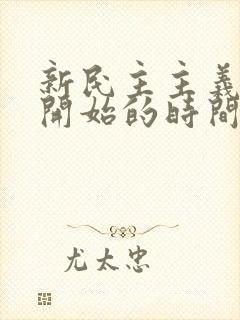 新民主主義
開始的時間
尤太忠